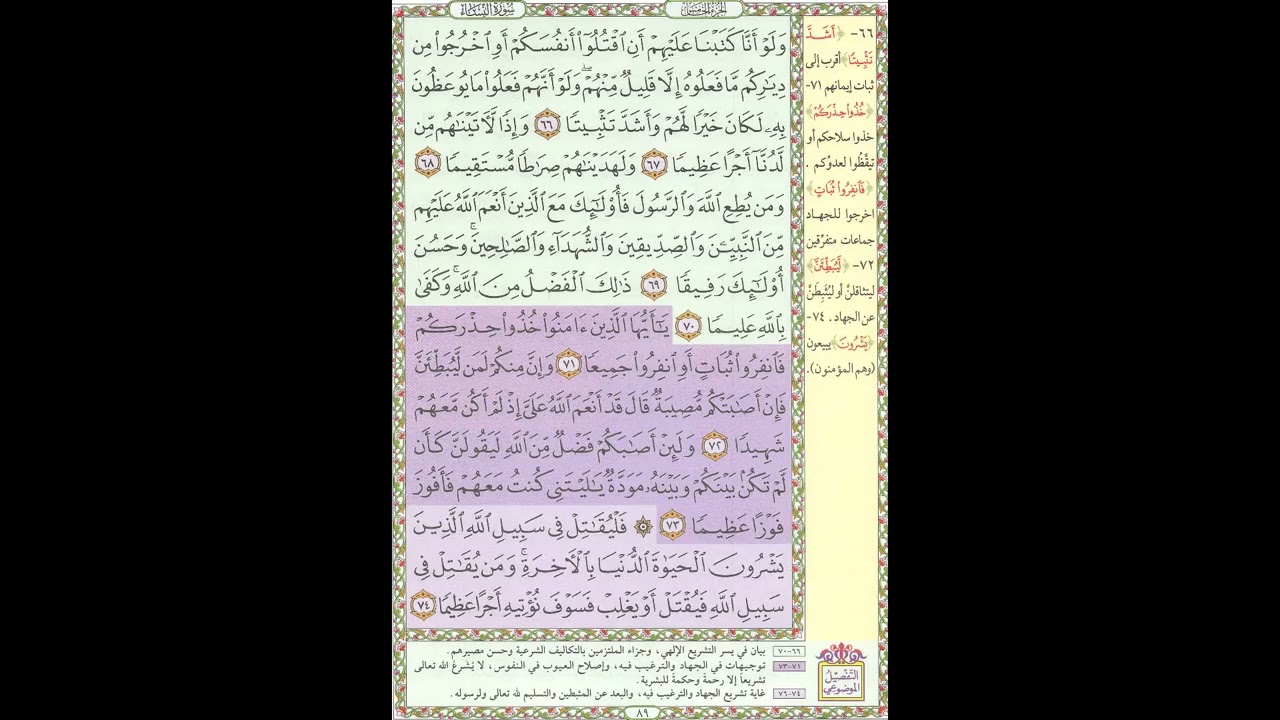 سُورَةُ النِّسَاءِ
الجُزْءُ الخَامِسُ
وَلَوْ أَنَّا كَتَبْنَا عَلَيْهِمْ أَنِ ٱقْتُلُوٓا۟ أَنفُسَكُمْ أَوِ ٱخْرُجُوا۟ مِن
دِيَـٰرِكُم مَّا فَعَلُوهُ إِلَّا قَلِيلٌ مِّنْهُمْ ۖ وَلَوْ أَنَّهُمْ فَعَلُوا۟ مَا يُوعَظُونَ
بِهِۦ لَكَانَ خَيْرًا لَّهُمْ وَأَشَدَّ تَثْبِيتًا ٦٦ وَإِذًا لَّـَٔاتَيْنَـٰهُم مِّن
لَّدُنَّآ أَجْرًا عَظِيمًا ٦٧ وَلَهَدَيْنَـٰهُمْ صِرَٰطًا مُّسْتَقِيمًا ٦٨
وَمَن يُطِعِ ٱللَّهَ وَٱلرَّسُولَ فَأُو۟لَـٰٓئِكَ مَعَ ٱلَّذِينَ أَنْعَمَ ٱللَّهُ عَلَيْهِم
مِّنَ ٱلنَّبِيِّـۧنَ وَٱلصِّدِّيقِينَ وَٱلشُّهَدَآءِ وَٱلصَّـٰلِحِينَ ۚ وَحَسُنَ
أُو۟لَـٰٓئِكَ رَفِيقًا ٦٩ ذَٰلِكَ ٱلْفَضْلُ مِنَ ٱللَّهِ ۚ وَكَفَىٰ
بِٱللَّهِ عَلِيمًا ٧٠ يَـٰٓأَيُّهَا ٱلَّذِينَ ءَامَنُوا۟ خُذُوا۟ حِذْرَكُمْ
فَٱنفِرُوا۟ ثُبَاتٍ أَوِ ٱنفِرُوا۟ جَمِيعًا ٧١ وَإِنَّ مِنكُمْ لَمَن لَّيُبَطِّئَنَّ
فَإِنْ أَصَـٰبَتْكُم مُّصِيبَةٌ قَالَ قَدْ أَنْعَمَ ٱللَّهُ عَلَىَّ إِذْ لَمْ أَكُن مَّعَهُمْ
شَهِيدًا ٧٢ وَلَئِنْ أَصَـٰبَكُمْ فَضْلٌ مِّنَ ٱللَّهِ لَيَقُولَنَّ كَأَن
لَّمْ تَكُنۢ بَيْنَكُمْ وَبَيْنَهُۥ مَوَدَّةٌ يَـٰلَيْتَنِى كُنتُ مَعَهُمْ فَأَفُوزَ
فَوْزًا عَظِيمًا ٧٣ ۞ فَلْيُقَـٰتِلْ فِى سَبِيلِ ٱللَّهِ ٱلَّذِينَ
يَشْرُونَ ٱلْحَيَوٰةَ ٱلدُّنْيَا بِٱلْـَٔاخِرَةِ ۚ وَمَن يُقَـٰتِلْ فِى
سَبِيلِ ٱللَّهِ فَيُقْتَلْ أَوْ يَغْلِبْ فَسَوْفَ نُؤْتِيهِ أَجْرًا عَظِيمًا ٧٤
٦٦- ﴿أَشَدَّ
تَثْبِيتًا﴾ أقرب إلى
ثبات إيمانهم ٧١-
﴿خُذُوا۟ حِذْرَكُمْ﴾
خذوا سلاحكم أو
تيقَّظُوا لعدوِّكم .
﴿فَٱنفِرُوا۟ ثُبَاتٍ﴾
اخرجوا للجهاد
جماعات متفرِّقين
٧٢- ﴿لَّيُبَطِّئَنَّ﴾
ليتثاقلنَّ أو ليُثَبِّطَنَّ
عن الجهاد . ٧٤-
﴿يَشْرُونَ﴾ يبيعون
(وهم المؤمنون).
التَّفْصِيلُ
المَوْضُوعِي
٦٦-٧٠ بيان في يسر التشريع الإلهي، وجزاء الملتزمين بالتكاليف الشرعية وحسن مصيرهم.
٧١-٧٣ توجيهات في الجهاد والترغيب فيه، وإصلاح العيوب في النفوس، لا يُشرعُ الله تعالى
تشريعاً إلا رحمةً وحكمةً للبشرية.
٧٤-٧٦ غاية تشريع الجهاد والترغيب فيه، والبعد عن المثبطين والتسليم لله تعالى ولرسوله.
٨٩